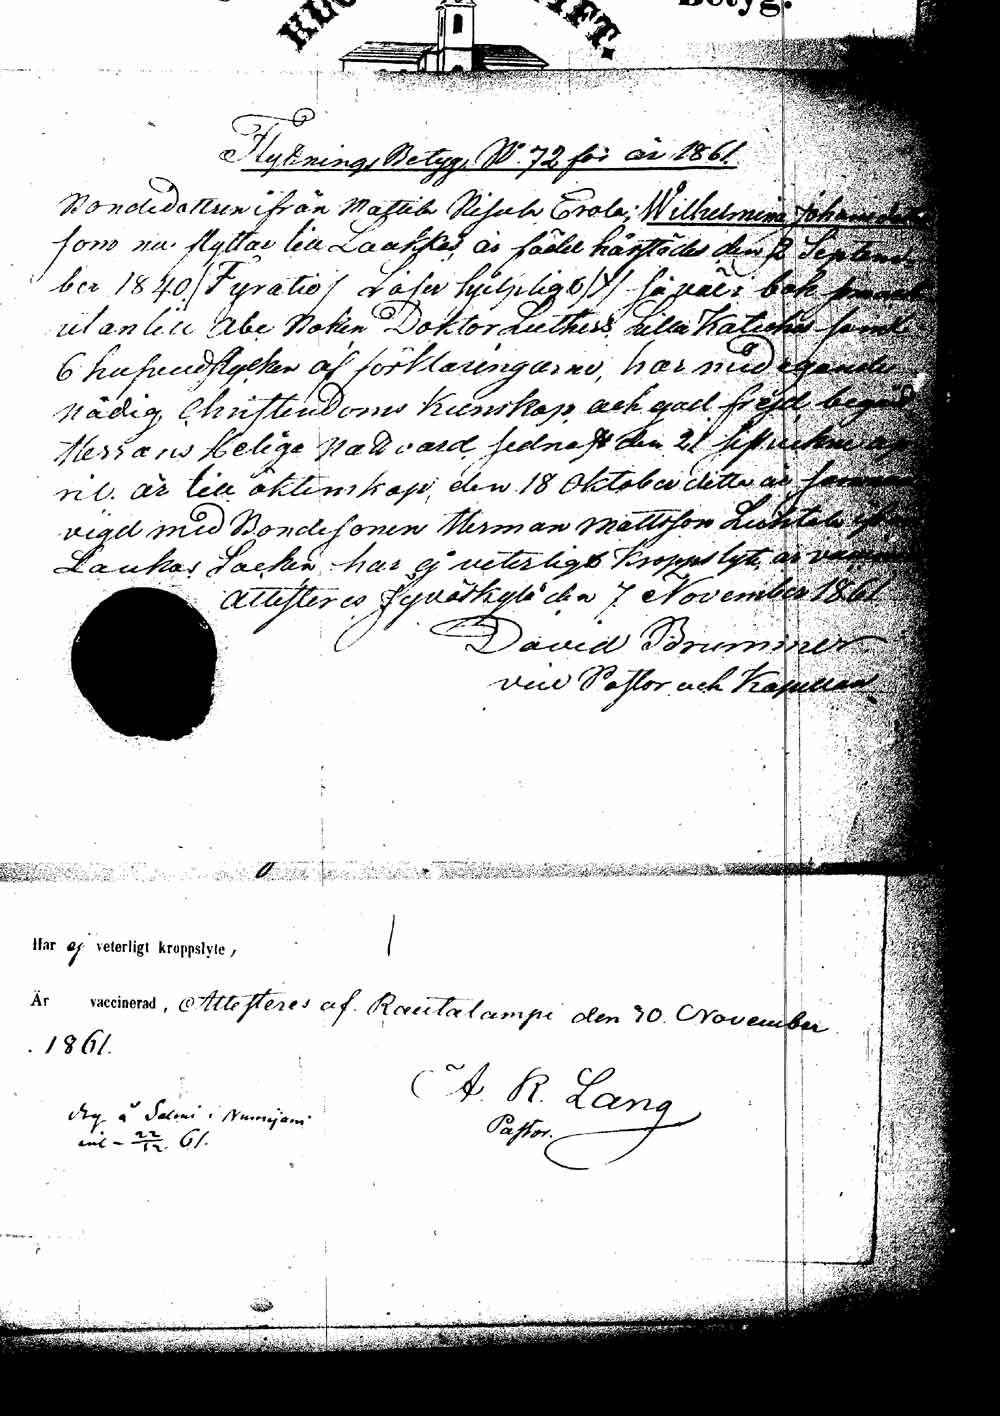 Betyg.
Flyttnings Betyg N° 72 för år 1861.
Bondedottren ifrån Nisula Erola, Wilhelmina Johansdotter
som nu flyttar till Laukka, är född härstädes den 2 Septem-
ber 1840 /Fyratio/ Läser hjelpligt /:/ såväl i bok som
utantill Abc Boken Doktor Luthers Lilla Kateches samt
6 hufvudstycken af förklaringarne, har med egande
nödig Christendoms kunskap och god frejd begått
Herrans Heliga Nattvard sednast den 21 sistvekne ap
ril. är till äktenskap, den 18 Oktober detta år
vigd med Bondesonen Herman Mattsson Lehtola ifrån
Laukas Socken, har ej veterligt kroppslyte, är
Attesteras Jyväskylä den 7 November 1861
David Brummer
vice Pastor och Kapellan
Har ej veterligt kroppslyte,
Är vaccinerad, Attesteres af Rautalampi den 30 November
1861.
A. R. Lang
Pastor.
å Salmi i
22/12 61.